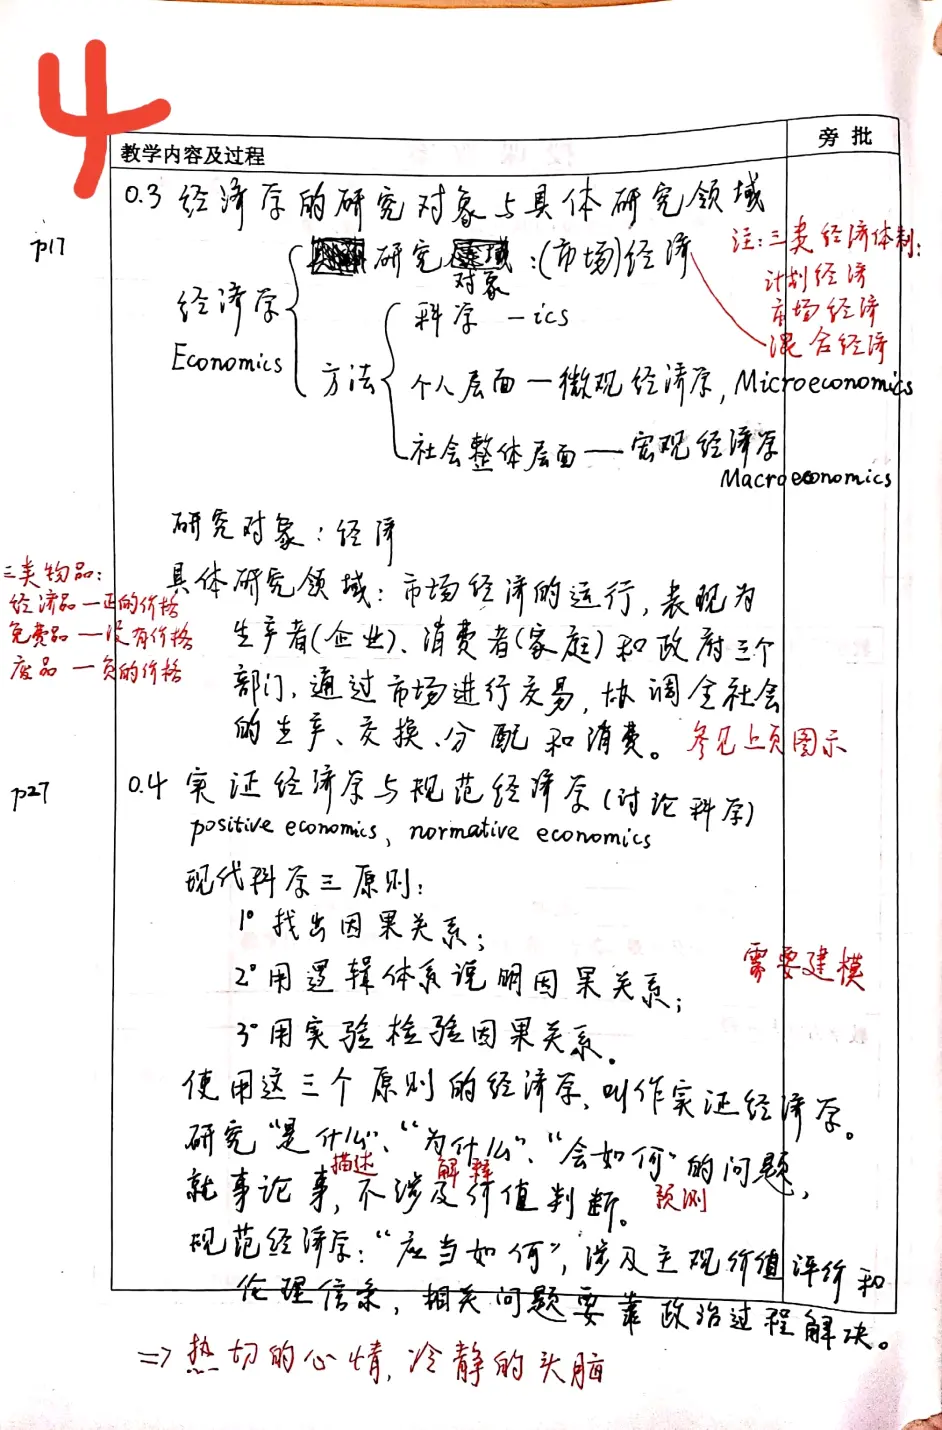 4
教学内容及过程
旁批
0.3 经济学的研究对象与具体研究领域
p17
注:三类经济体制:
计划经济
市场经济
混合经济
经济学
Economics
研究对象:(市场)经济
方法
科学 -ics
个人层面—微观经济学, Microeconomics
社会整体层面—宏观经济学
Macroeconomics
研究对象:经济
三类物品:
经济品—正的价格
免费品—没有价格
废品—负的价格
具体研究领域:市场经济的运行,表现为
生产者(企业)、消费者(家庭)和政府三个
部门,通过市场进行交易,协调全社会
的生产、交换、分配和消费。 参见上页图示
p27
0.4 实证经济学与规范经济学(讨论科学)
positive economics, normative economics
现代科学三原则:
1° 找出因果关系;
2° 用逻辑体系说明因果关系; 需要建模
3° 用实验检验因果关系。
使用这三个原则的经济学,叫作实证经济学。
研究“是什么”、“为什么”、“会如何”的问题,
描述 解释 预测
就事论事,不涉及价值判断。
规范经济学:“应当如何”,涉及主观价值评价和
伦理信条,相关问题要靠政治过程解决。
=> 热切的心情,冷静的头脑